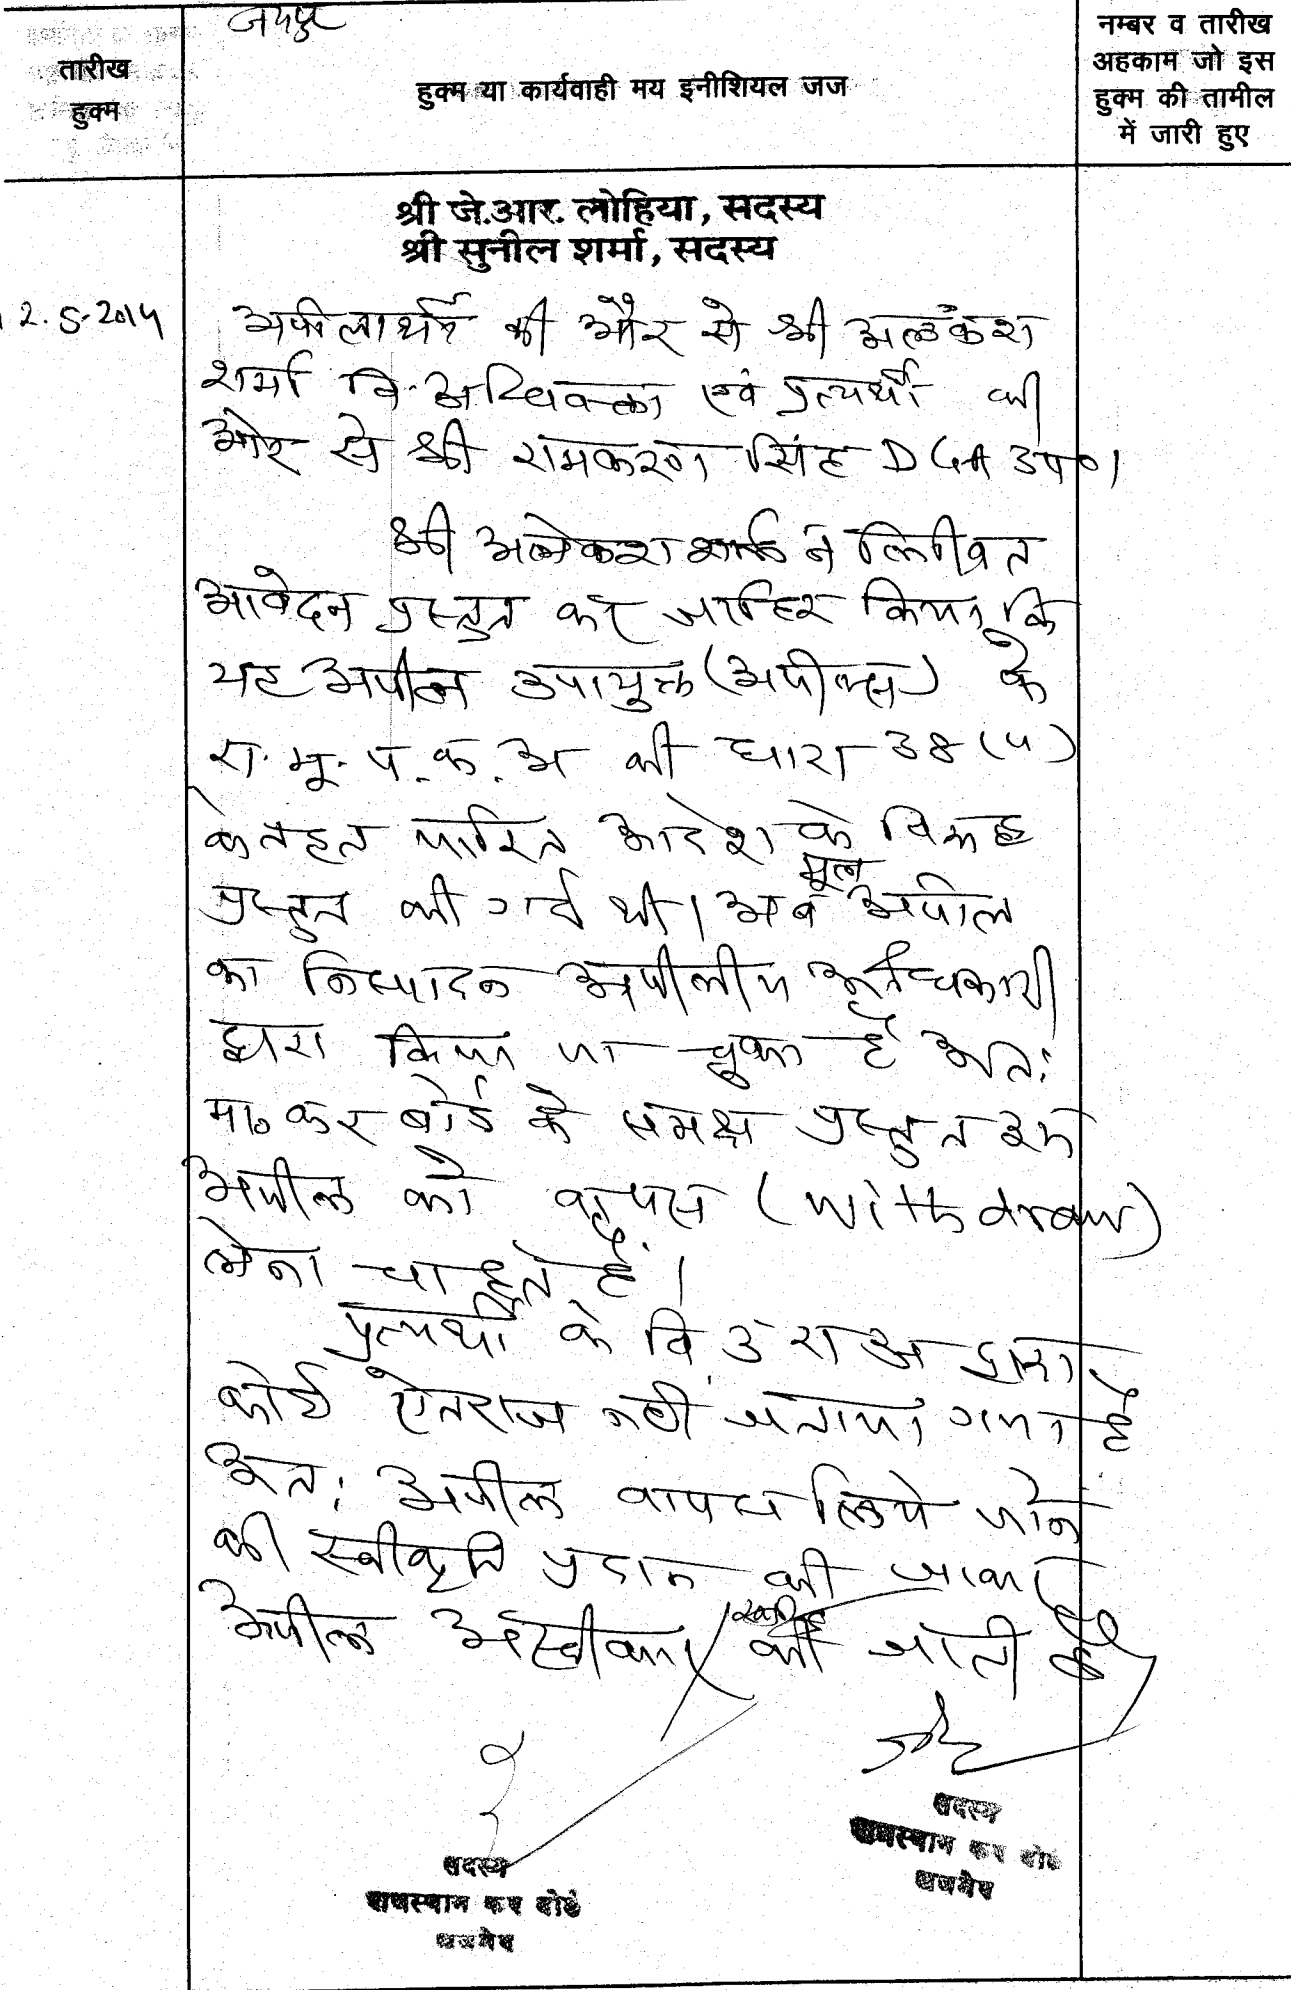 जयपुर
तारीख
हुक्म
हुक्म या कार्यवाही मय इनीशियल जज
नम्बर व तारीख
अहकाम जो इस
हुक्म की तामील
में जारी हुए
श्री जे.आर. लोहिया, सदस्य
श्री सुनील शर्मा, सदस्य
12.5.2014
अपीलार्थी की ओर से श्री अलकेश
शर्मा वि. अधिवक्ता एवं प्रत्यर्थी की
ओर से श्री रामकरण सिंह DGA उप०।
श्री अलकेश शर्मा ने लिखित
आवेदन प्रस्तुत कर जाहिर किया कि
यह अपील उपायुक्त (अपील्स) के
रा. मू. प. क. अ की धारा 38 (4)
के तहत पारित आदेश के विरूद्ध
प्रस्तुत की गई थी। अब मूल अपील
का निष्पादन अपीलीय अधिकारी
द्वारा किया जा चुका है अतः
मा० कर बोर्ड के समक्ष प्रस्तुत इस
अपील को वापस (withdraw)
लेना चाहते हैं।
प्रत्यर्थी के वि. उ रा अ द्वारा
कोई ऐतराज नहीं जताया गया है
अतः अपील वापस लिये जाने
की स्वीकृति प्रदान की जाकर
अपील अस्वीकार की जाती है
सदस्य
राजस्थान कर बोर्ड
अजमेर
सदस्य
राजस्थान कर बोर्ड
अजमेर